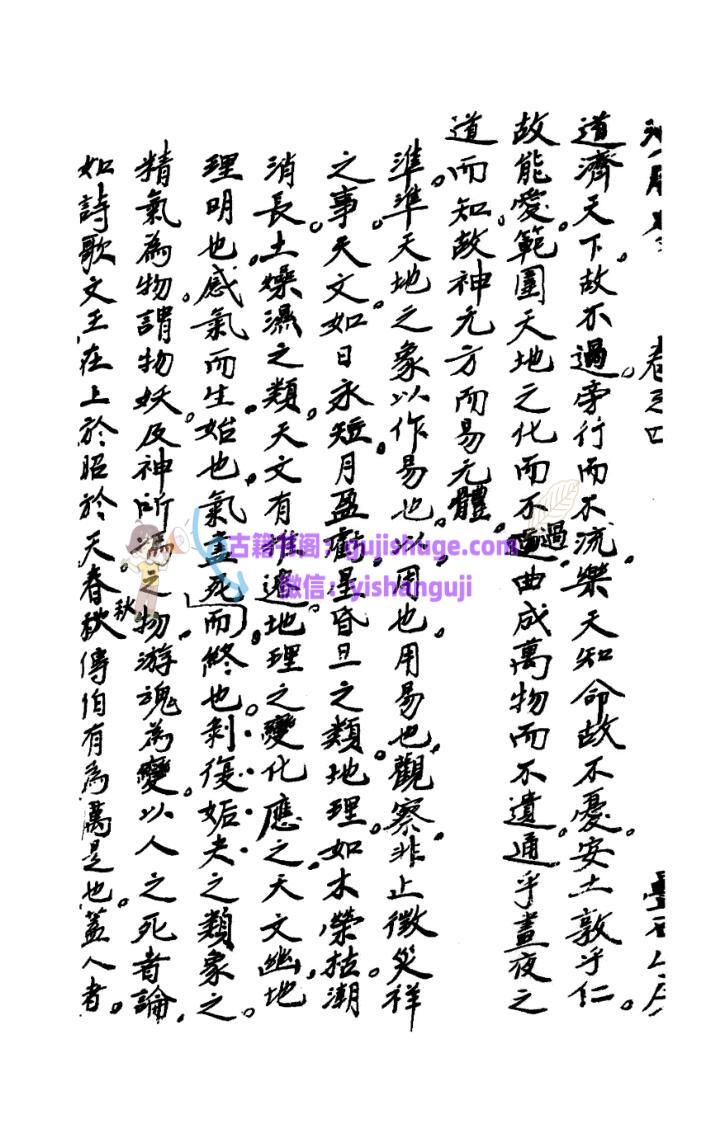 卷之四
道濟天下故不過。旁行而不流。樂天知命故不憂。安土敦乎仁。
故能愛。範圍天地之化而不過。曲成萬物而不遺。通乎晝夜之
道而知。故神无方而易无體。
準。準天地之象以作易也。以。用也。用易也。觀察。非止徵災祥
之事。天文。如日永短。月盈虧。星昏旦之類。地理。如木榮枯。潮
消長。土燥濕之類。天文有推遷。地理之變化應之。天文幽。地
理明也。感氣而生。始也。氣盡死而終也。剝復姤夬之類象之。
精氣為物。謂物妖及神所馮之物。游魂為變。以人之死者論。
如詩歌文王在上於昭於天。春秋傳伯有為厲是也。蓋人者。
秋
古籍书阁：gujishuge.com
微信：yishanguji